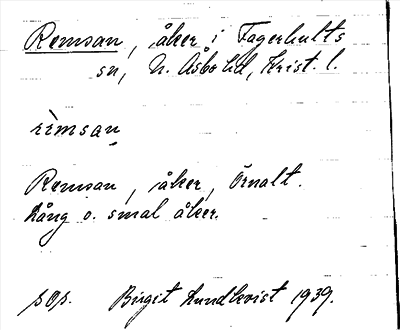 Remsan, åker i Fagerhults
sn, N. Åsbo hd, Krist. l.
rìmsan
Remsan, åker, Örnalt.
Lång o. smal åker.
sop. Birgit Lundkvist 1939.